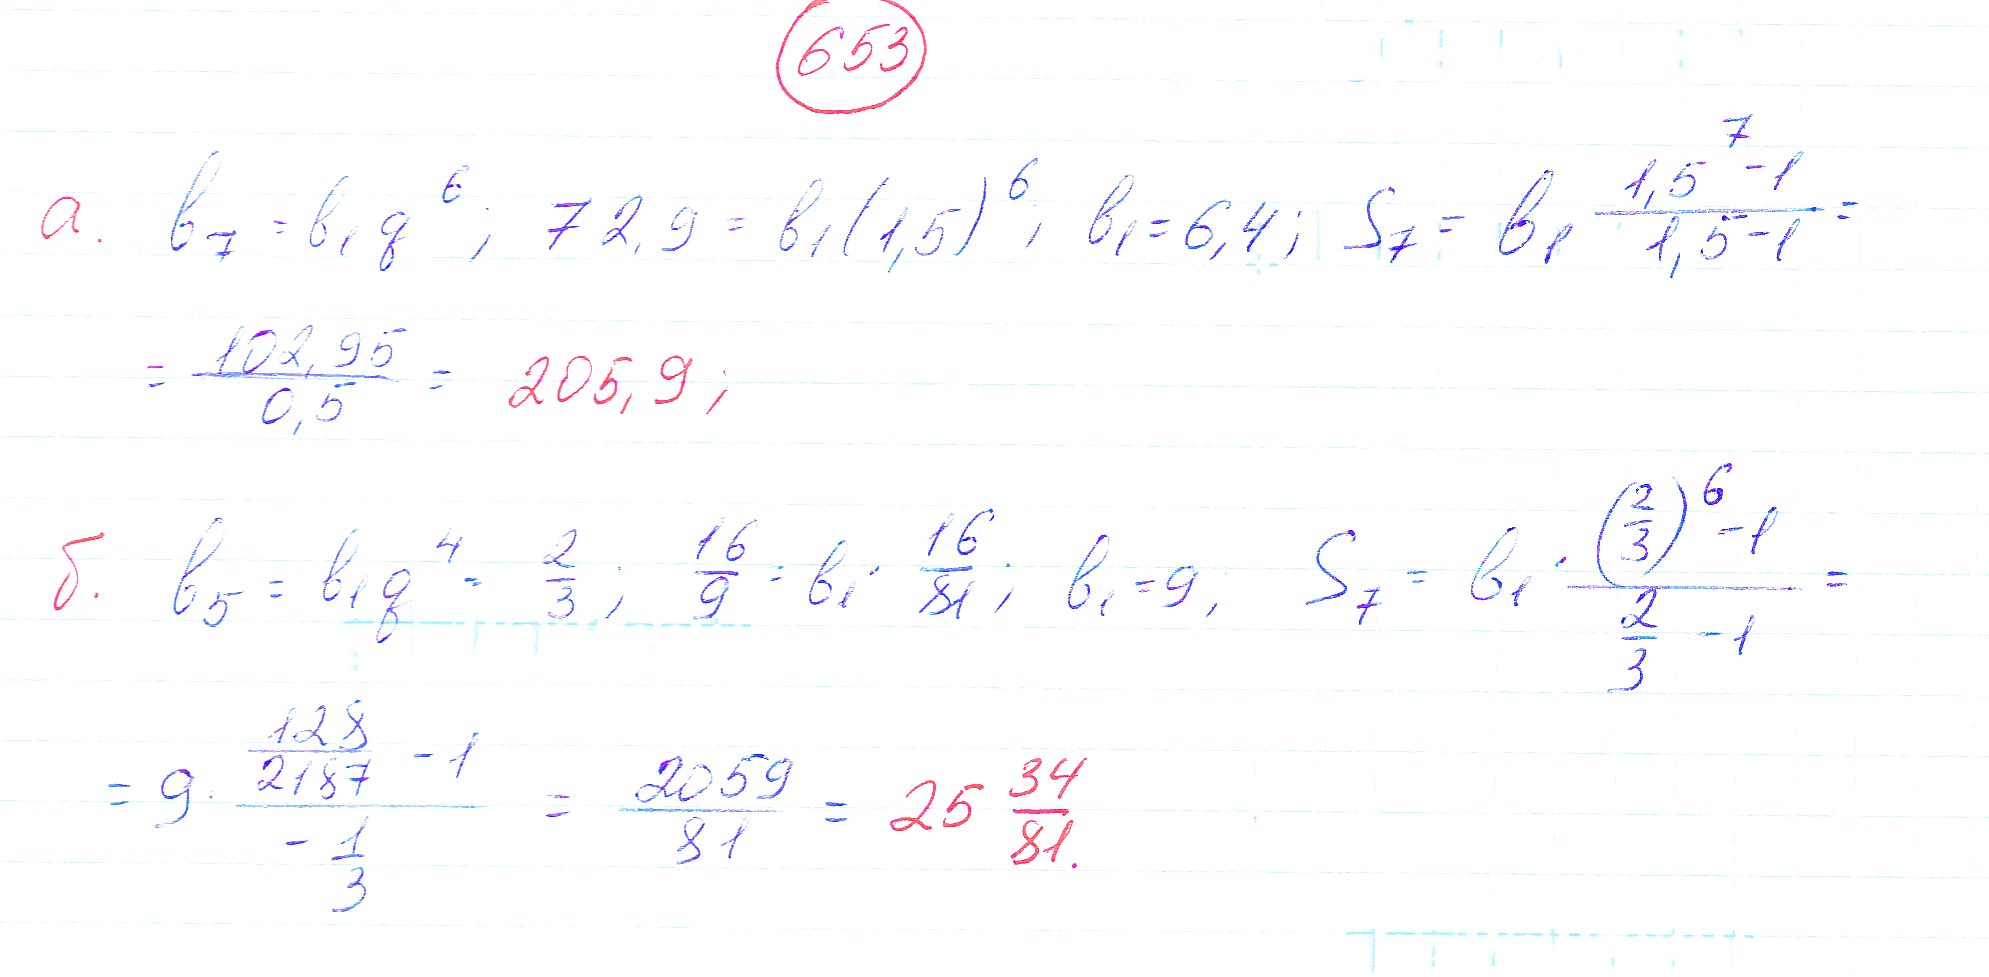 653
а. b₇ = b₁q⁶; 72,9 = b₁(1,5)⁶; b₁ = 6,4; S₇ = b₁ (1,5⁷ - 1)/(1,5 - 1) =
= 102,95/0,5 = 205,9;
б. b₅ = b₁q⁴ = 2/3; 16/9 = b₁ · 16/81; b₁ = 9; S₇ = b₁ · ((2/3)⁶ - 1)/(2/3 - 1) =
= 9 · (128/2187 - 1)/(- 1/3) = 2059/81 = 25 34/81.